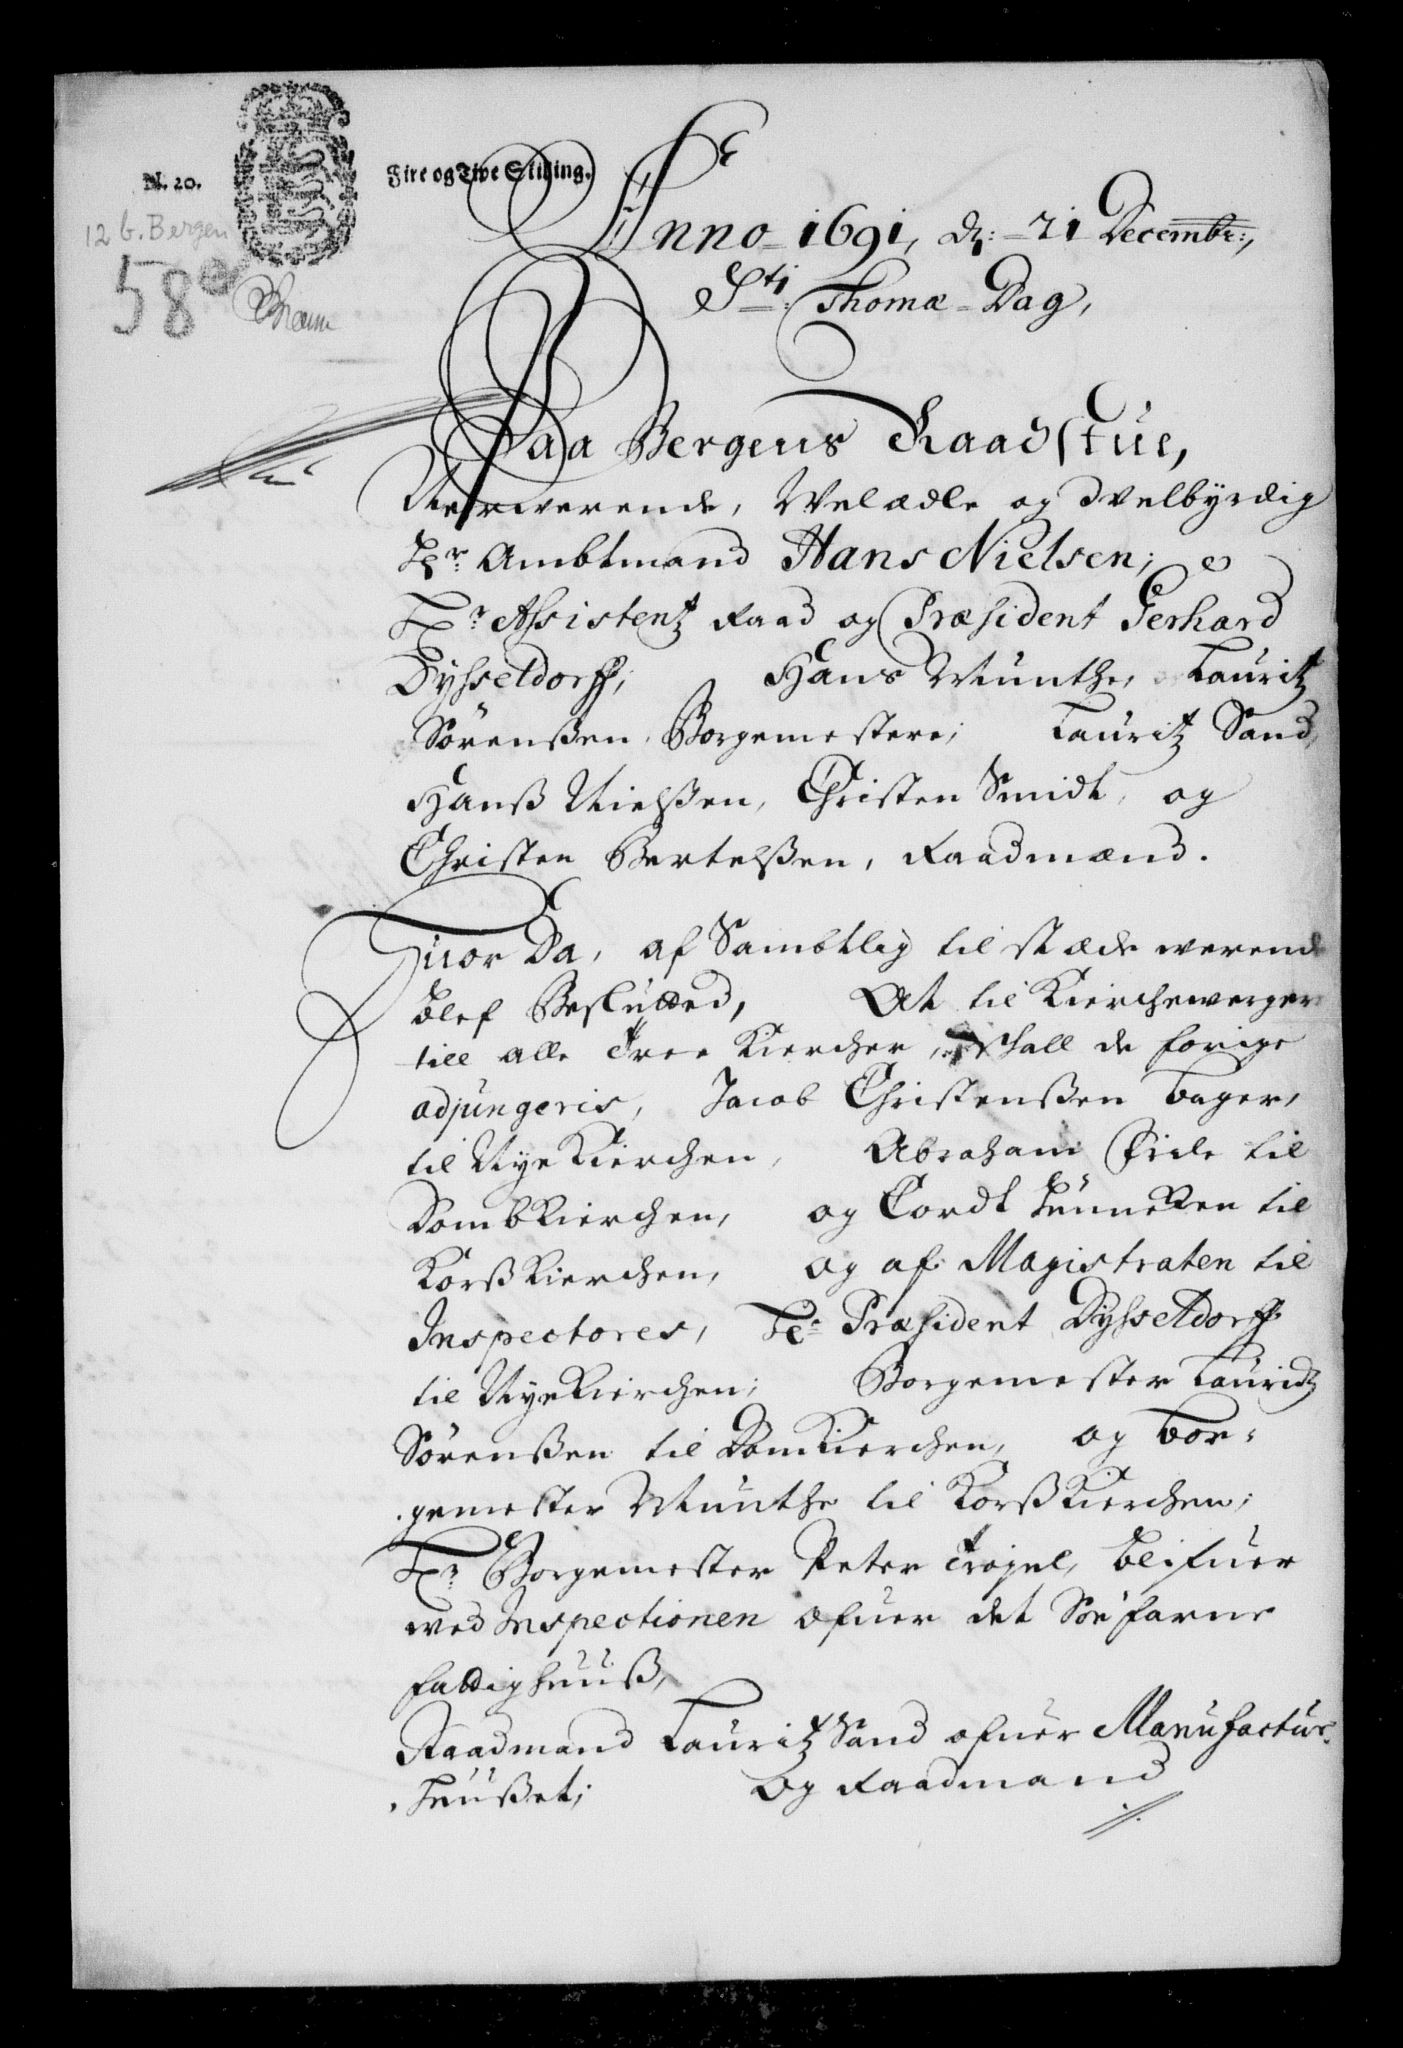 N. 20.
Fire og Tive Skilling.
12 b. Bergen
58
Anno 1691, d: 21 Decembr:,
Sti: Thomæ Dag,
Paa Bergens Raadstue,
Nerwerende, Welædle og Welbyrdig
Hr: Ambtmand Hans Nielsen;
Hr: Assistentz Raad og Præsident Gerhard
Dysseldorff, Hans Munthe, Lauritz
Sörenßen Borgemestere; Lauritz Sand,
Hanß Nielßen, Christen Smidt, og
Christen Bertelßen, Raadmænd.
Huor Da, af Sambtlig til stæde werende
blef Beslutted, At til Kierchewerger
till alle Tree Kiercher, skall de forige
adjungeris, Jacob Christenßen bager,
til Nye Kierchen, Abraham til
Dombkierchen, og Cordt til
Korßkierchen, og af Magistraten til
Inspectores, Hr: Præsident Dysseldorff
til Nyekierchen; Borgemester Lauridtz
Sörenßen til Domkierchen, og bor-
gemester Munthe til Korßkierchen;
Hr: Borgemester Peter blifuer
wed Inspectionen ofuer det Söefarne
fattighuuß,
Raadmand Lauritz Sand ofuer Manufactur-
huußet; Og Raadmand